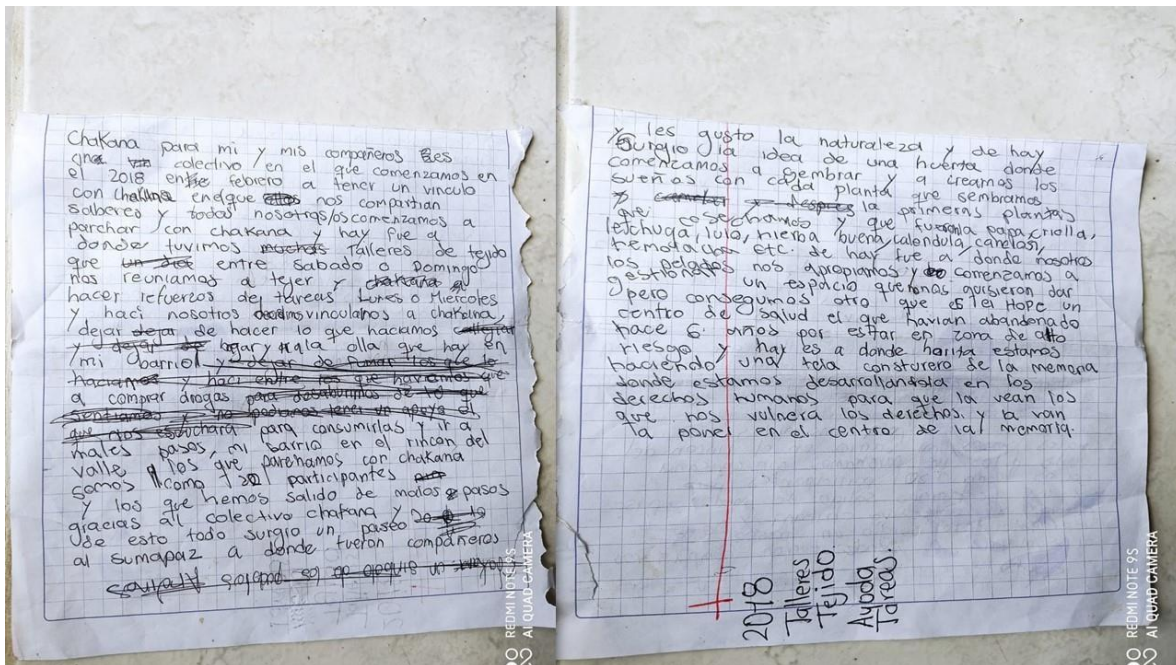 Chakana para mi y mis compañeros es
colectivo en el que comenzamos en
el 2018 febrero a tener un vinculo
con chakana enque nos compartian
saberes y todas nosotras/os comenzamos a
parchar con chakana y hay fue a
donde tuvimos Talleres de tejido
que entre Sabado o Domingo
nos reuniamos a tejer y
hacer refuerzos de tareas Lunes o Miercoles
y haci nosotros vinculamos a chakana,
dejar de hacer lo que haciamos
y ir a la olla que hay en
mi barrio y
a comprar drogas
para consumirlas y ir a
malos pasos, mi barrio en el rincon del
valle los que parchamos con chakana
somos como participantes
y los que hemos salido de malos pasos
gracias al colectivo chakana y
de esto todo surgio un paseo
al sumapaz a donde fueron compañeros
y les gusto la naturaleza y de hay
Surgio la idea de una huerta donde
comenzamos a sembrar y a creamos los
sueños con cada planta que sembramos
la primeras plantas
que cosechamos y que fueron la papa criolla,
letchuga, lulo, hierba buena, calendula, canelasi,
remolacha etc. de hay fue a donde nosotros
los pelados nos apropiamos y comenzamos a
gestionar un espacio que nonas quisieron dar
pero consegumos otro que es el Hope un
centro de salud el que havian abandonado
hace 6 años por estar en zona de alto
riesgo y hay es a donde harita estamos
haciendo una tela consturero de la memoria
donde estamos desarrollandola en los
derechos humanos para que la vean los
que nos vulnera los derechos. y la van
a poner en el centro de la memoria.
2018
Talleres
Tejido.
Ayuda
Tareas.
REDMI NOTE 9S
AI QUAD CAMERA
REDMI NOTE 9S
AI QUAD CAMERA